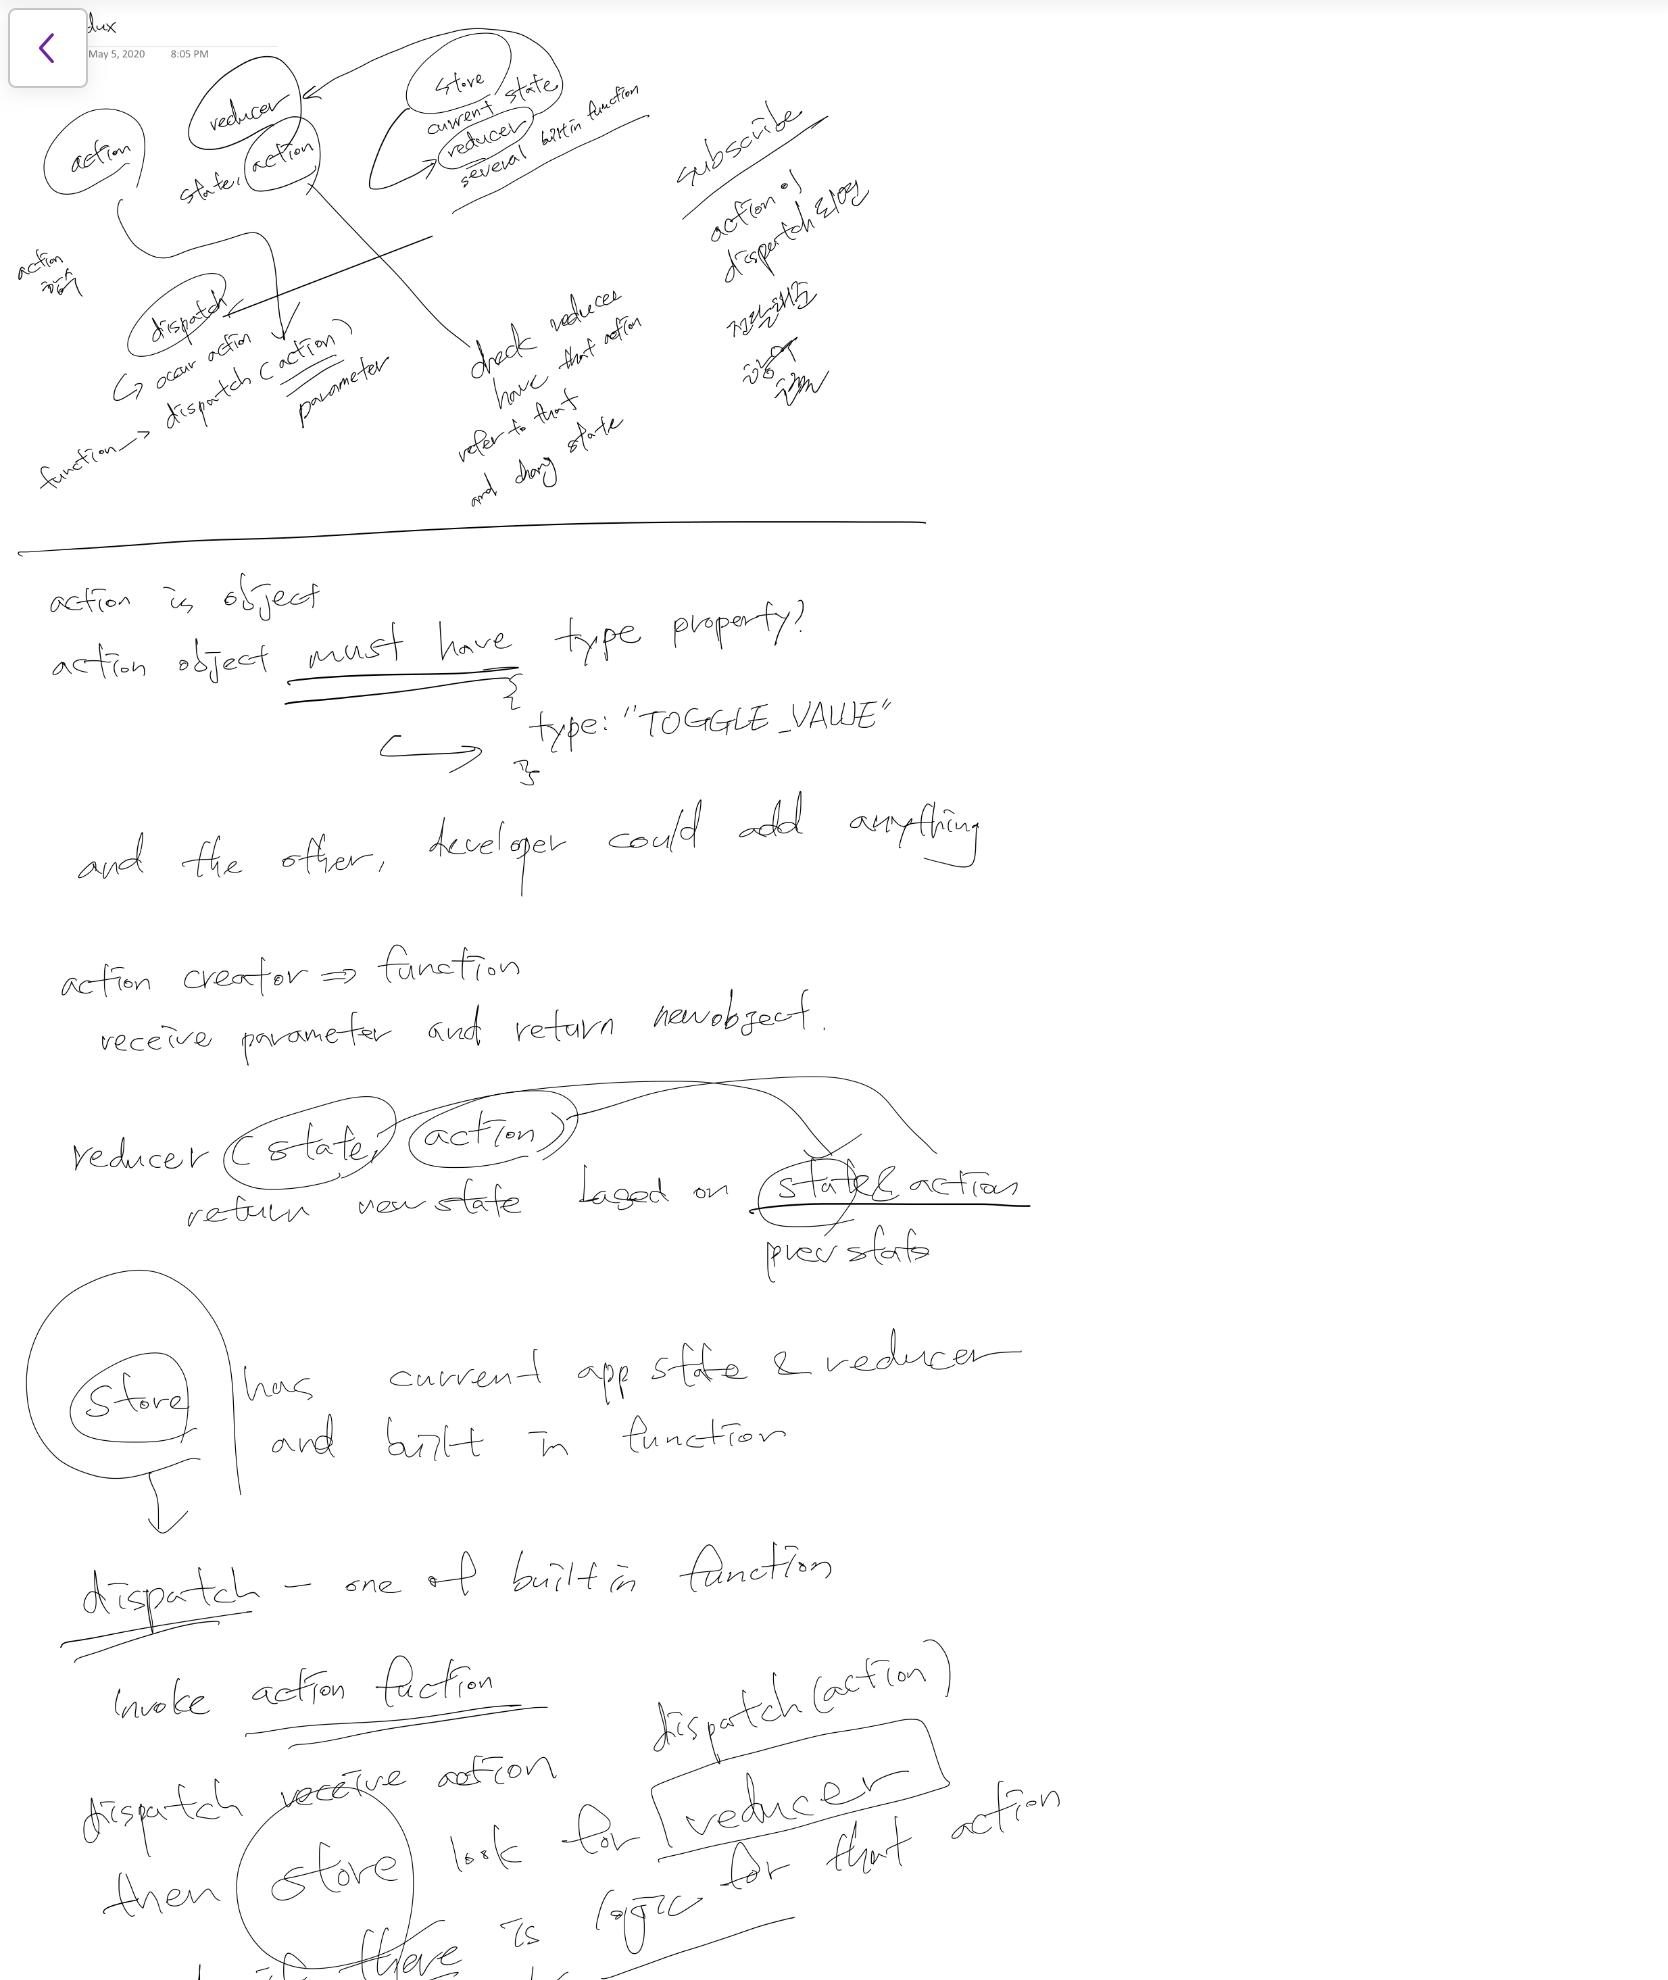 dux
May 5, 2020 8:05 PM
action
reducer
state, action
store
current state
reducer
several built in function
subscribe
action이
dispatch되면
전달해준
action
함수
dispatch
occur action
function → dispatch (action)
parameter
check reducer
have that action
refer to that
and chang state
action is object
action object must have type property?
{
type: "TOGGLE_VALUE"
}
and the other, developer could add anything
action creator ⇒ function
receive parameter and return new object.
reducer (state, action)
return new state based on state & action
prev state
store has current app state & reducer
and built in function
dispatch - one of built in function
Invoke action fuction
dispatch (action)
dispatch receive action
then store look for reducer
there is logic for that action